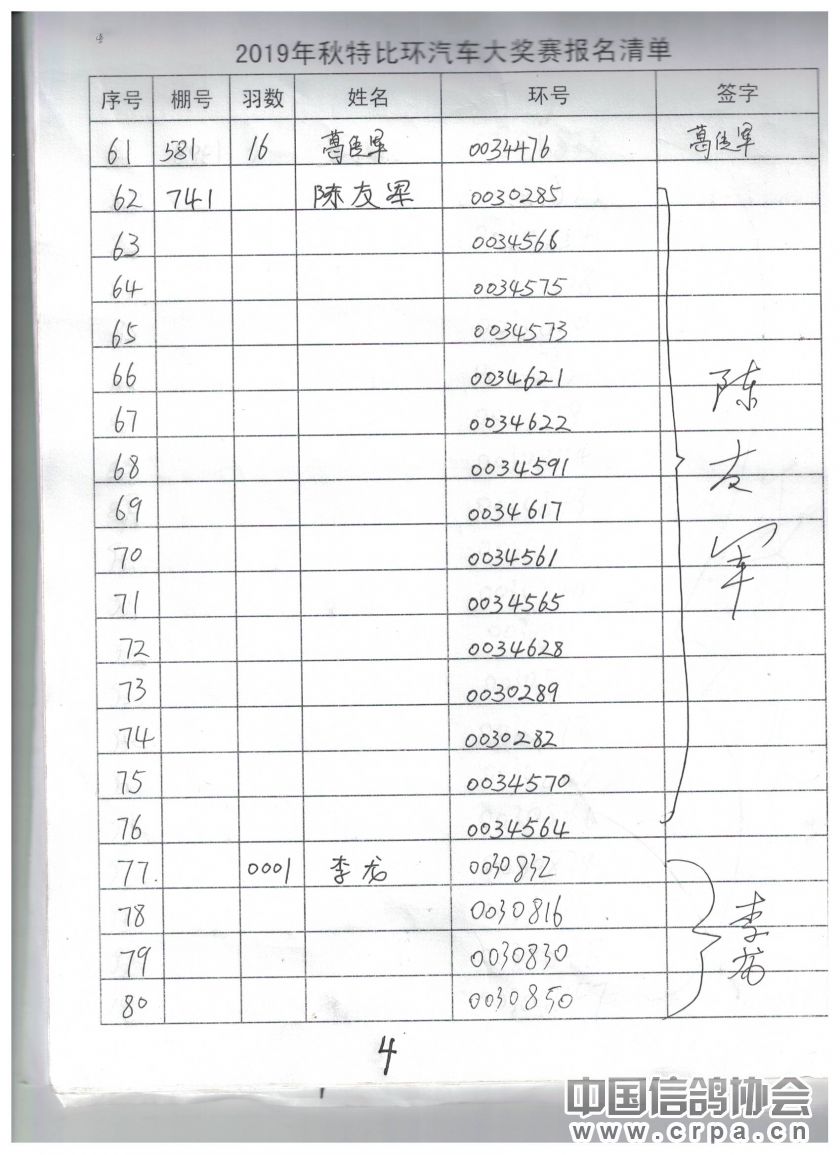 2019年秋特比环汽车大奖赛报名清单
序号 棚号 羽数 姓名 环号 签字
61 581 16 葛佳军 0034476 葛佳军
62 741 陈友军 0030285
63 0034566
64 0034575
65 0034573
66 0034621
67 0034622
68 0034591
69 0034617
70 0034561
71 0034565
72 0034628
73 0030289
74 0030282
75 0034570
76 0034564
陈友军
77 0001 李龙 0030832
78 0030816
79 0030830
80 0030850
李龙
4
中国信鸽协会
www.crpa.cn